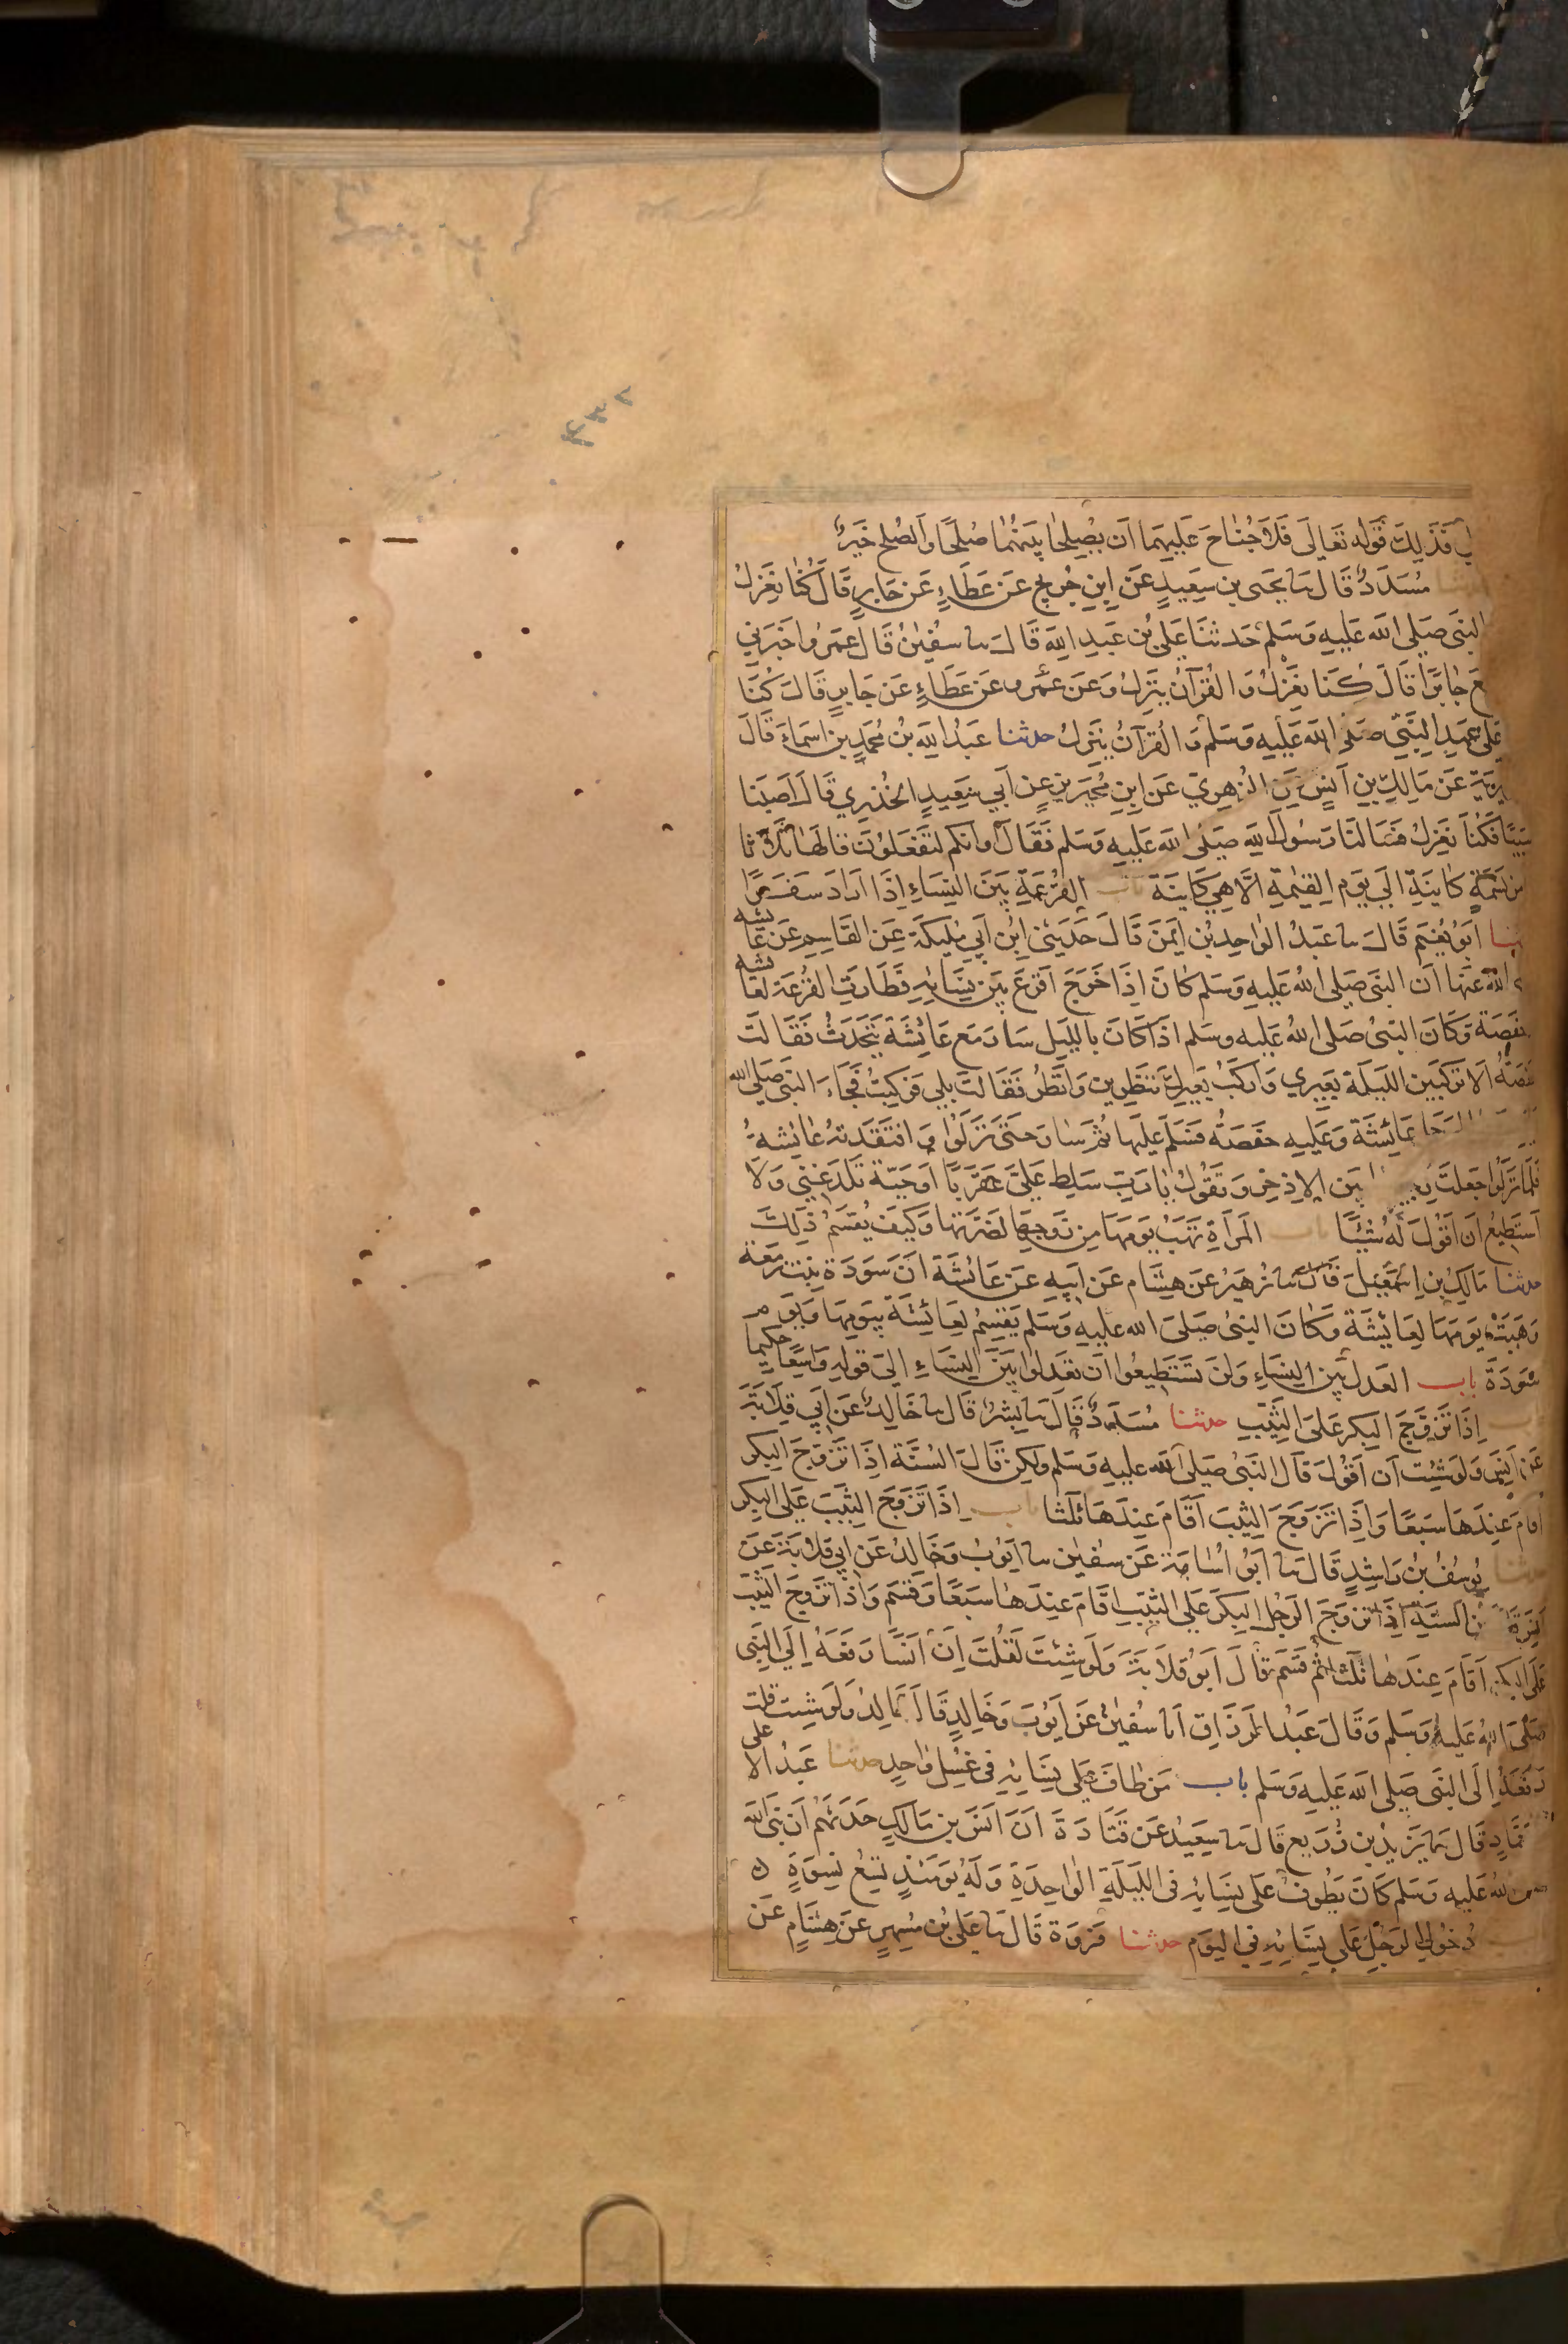 ٢٣٤
فذلك قوله تعالى فلا جناح عليهما ان يصلحا بينهما صلحا والصلح خير
مسدد قال سا يحيى بن سعيد عن ابن جريج عن عطاء عن جابر قال كنا نعزل
النبي صلى الله عليه وسلم حدثنا علي بن عبد الله قال سا سفين قال عمرو اخبرني
جابرا قال كنا نعزل والقرآن ينزل وعن عمرو عن عطاء عن جابر قال كنا
على عهد النبي صلى الله عليه وسلم والقرآن ينزل حدثنا عبد الله بن محمد بن اسماء قال
عن مالك بن انس عن الزهري عن ابن محيريز عن ابي سعيد الخدري قال اصبنا
سبيا فكنا نعزل فسالنا رسول الله صلى الله عليه وسلم فقال اوانكم لتفعلون قالها ثلاثا
من نسمة كاينة الى يوم القيمة الا هي كاينة باب القرعة بين النساء اذا اراد سفرا
ابو نعيم قال سا عبد الواحد بن ايمن قال حدثني ابن ابي مليكة عن القاسم عن عائشه
الله عنها ان النبي صلى الله عليه وسلم كان اذا خرج اقرع بين نسائه فطارت القرعة لعائشه
وكان النبي صلى الله عليه وسلم اذا كان بالليل سار مع عائشة يتحدث فقالت
الا تركبين الليلة بعيري واركب بعيرك تنظرين وانظر فقالت بلى فركبت فجاء النبي صلى الله
عائشة وعليه حفصة فسلم عليها ثم سار حتى نزلوا وافتقدته عائشة
فلما نزلوا جعلت بين الاذخر وتقول يا رب سلط علي عقربا او حية تلدغني ولا
استطيع ان اقول له شيئا باب المرأة تهب يومها من زوجها لضرتها وكيف يقسم ذلك
حدثنا مالك بن اسمعيل قال سا زهير عن هشام عن ابيه عن عائشة ان سودة بنت زمعة
وهبت يومها لعائشة وكان النبي صلى الله عليه وسلم يقسم لعائشة بيومها ويوم
سودة باب العدل بين النساء ولن تستطيعوا ان تعدلوا بين النساء الى قوله واسعا حكيما
باب اذا تزوج البكر على الثيب حدثنا مسدد قال سا بشر قال سا خالد عن ابي قلابة
عن انس ولو شئت ان اقول قال النبي صلى الله عليه وسلم ولكن قال السنة اذا تزوج البكر
اقام عندها سبعا واذا تزوج الثيب اقام عندها ثلثا باب اذا تزوج الثيب على البكر
يوسف بن راشد قال سا ابو اسامة عن سفين سا ايوب وخالد عن ابي قلابة عن
السنة اذا تزوج الرجل البكر على الثيب اقام عندها سبعا وقسم واذا تزوج الثيب
على البكر اقام عندها ثلثا ثم قسم قال ابو قلابة ولو شئت لقلت ان انسا رفعه الى النبي
صلى الله عليه وسلم وقال عبد الرزاق انا سفين عن ايوب وخالد قال خالد ولو شئت قلت
رفعه الى النبي صلى الله عليه وسلم باب من طاف على نسائه في غسل واحد حدثنا عبد الاعلى
قال سا يزيد بن زريع قال سا سعيد عن قتادة ان انس بن مالك حدثهم ان نبي الله
الله عليه وسلم كان يطوف على نسائه في الليلة الواحدة وله يومئذ تسع نسوة
دخول الرجل على نسائه في اليوم حدثنا فروة قال سا علي بن مسهر عن هشام عن